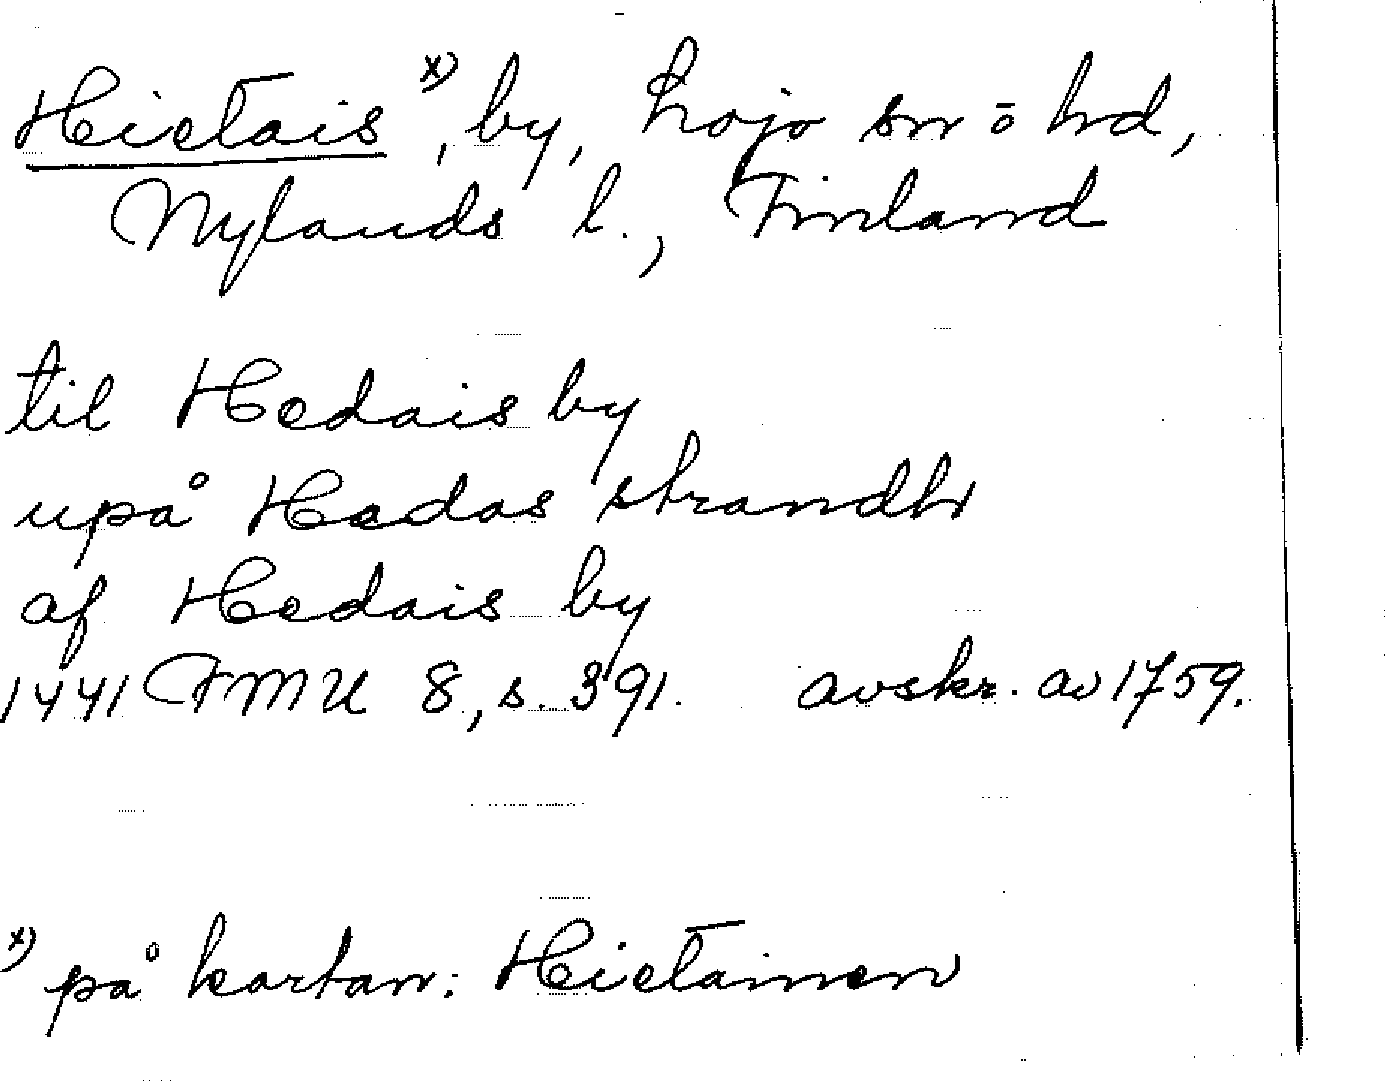 Hietais x), by, Lojo sn o hd,
Nylands l., Finland
til Hedais by
upå Hadas strandh
af Hedais by
1441 FMU 8, s. 391. avskr. av 1759.
x) på kartan: Hietainen